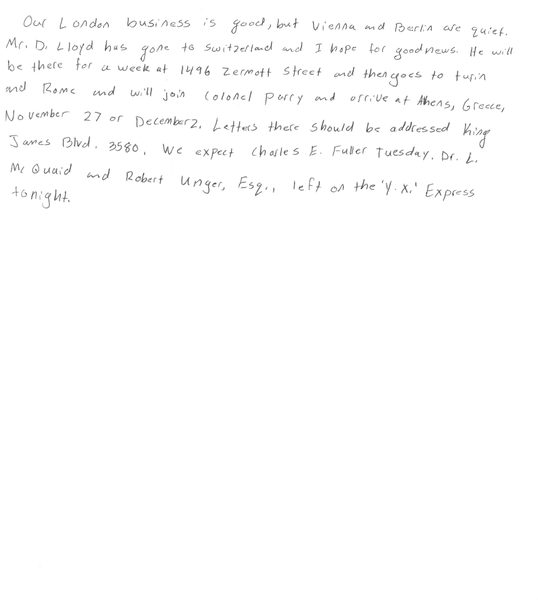 Our London business is good, but Vienna and Berlin are quiet.
Mr. D. Lloyd has gone to Switzerland and I hope for good news. He will
be there for a week at 1496 Zermott Street and then goes to turin
and Rome and will join Colonel Parry and arrive at Athens, Greece,
November 27 or December 2. Letters there should be addressed King
James Blvd. 3580. We expect Charles E. Fuller Tuesday. Dr. L.
Mc Quaid and Robert Unger, Esq., left on the 'Y.X.' Express
tonight.